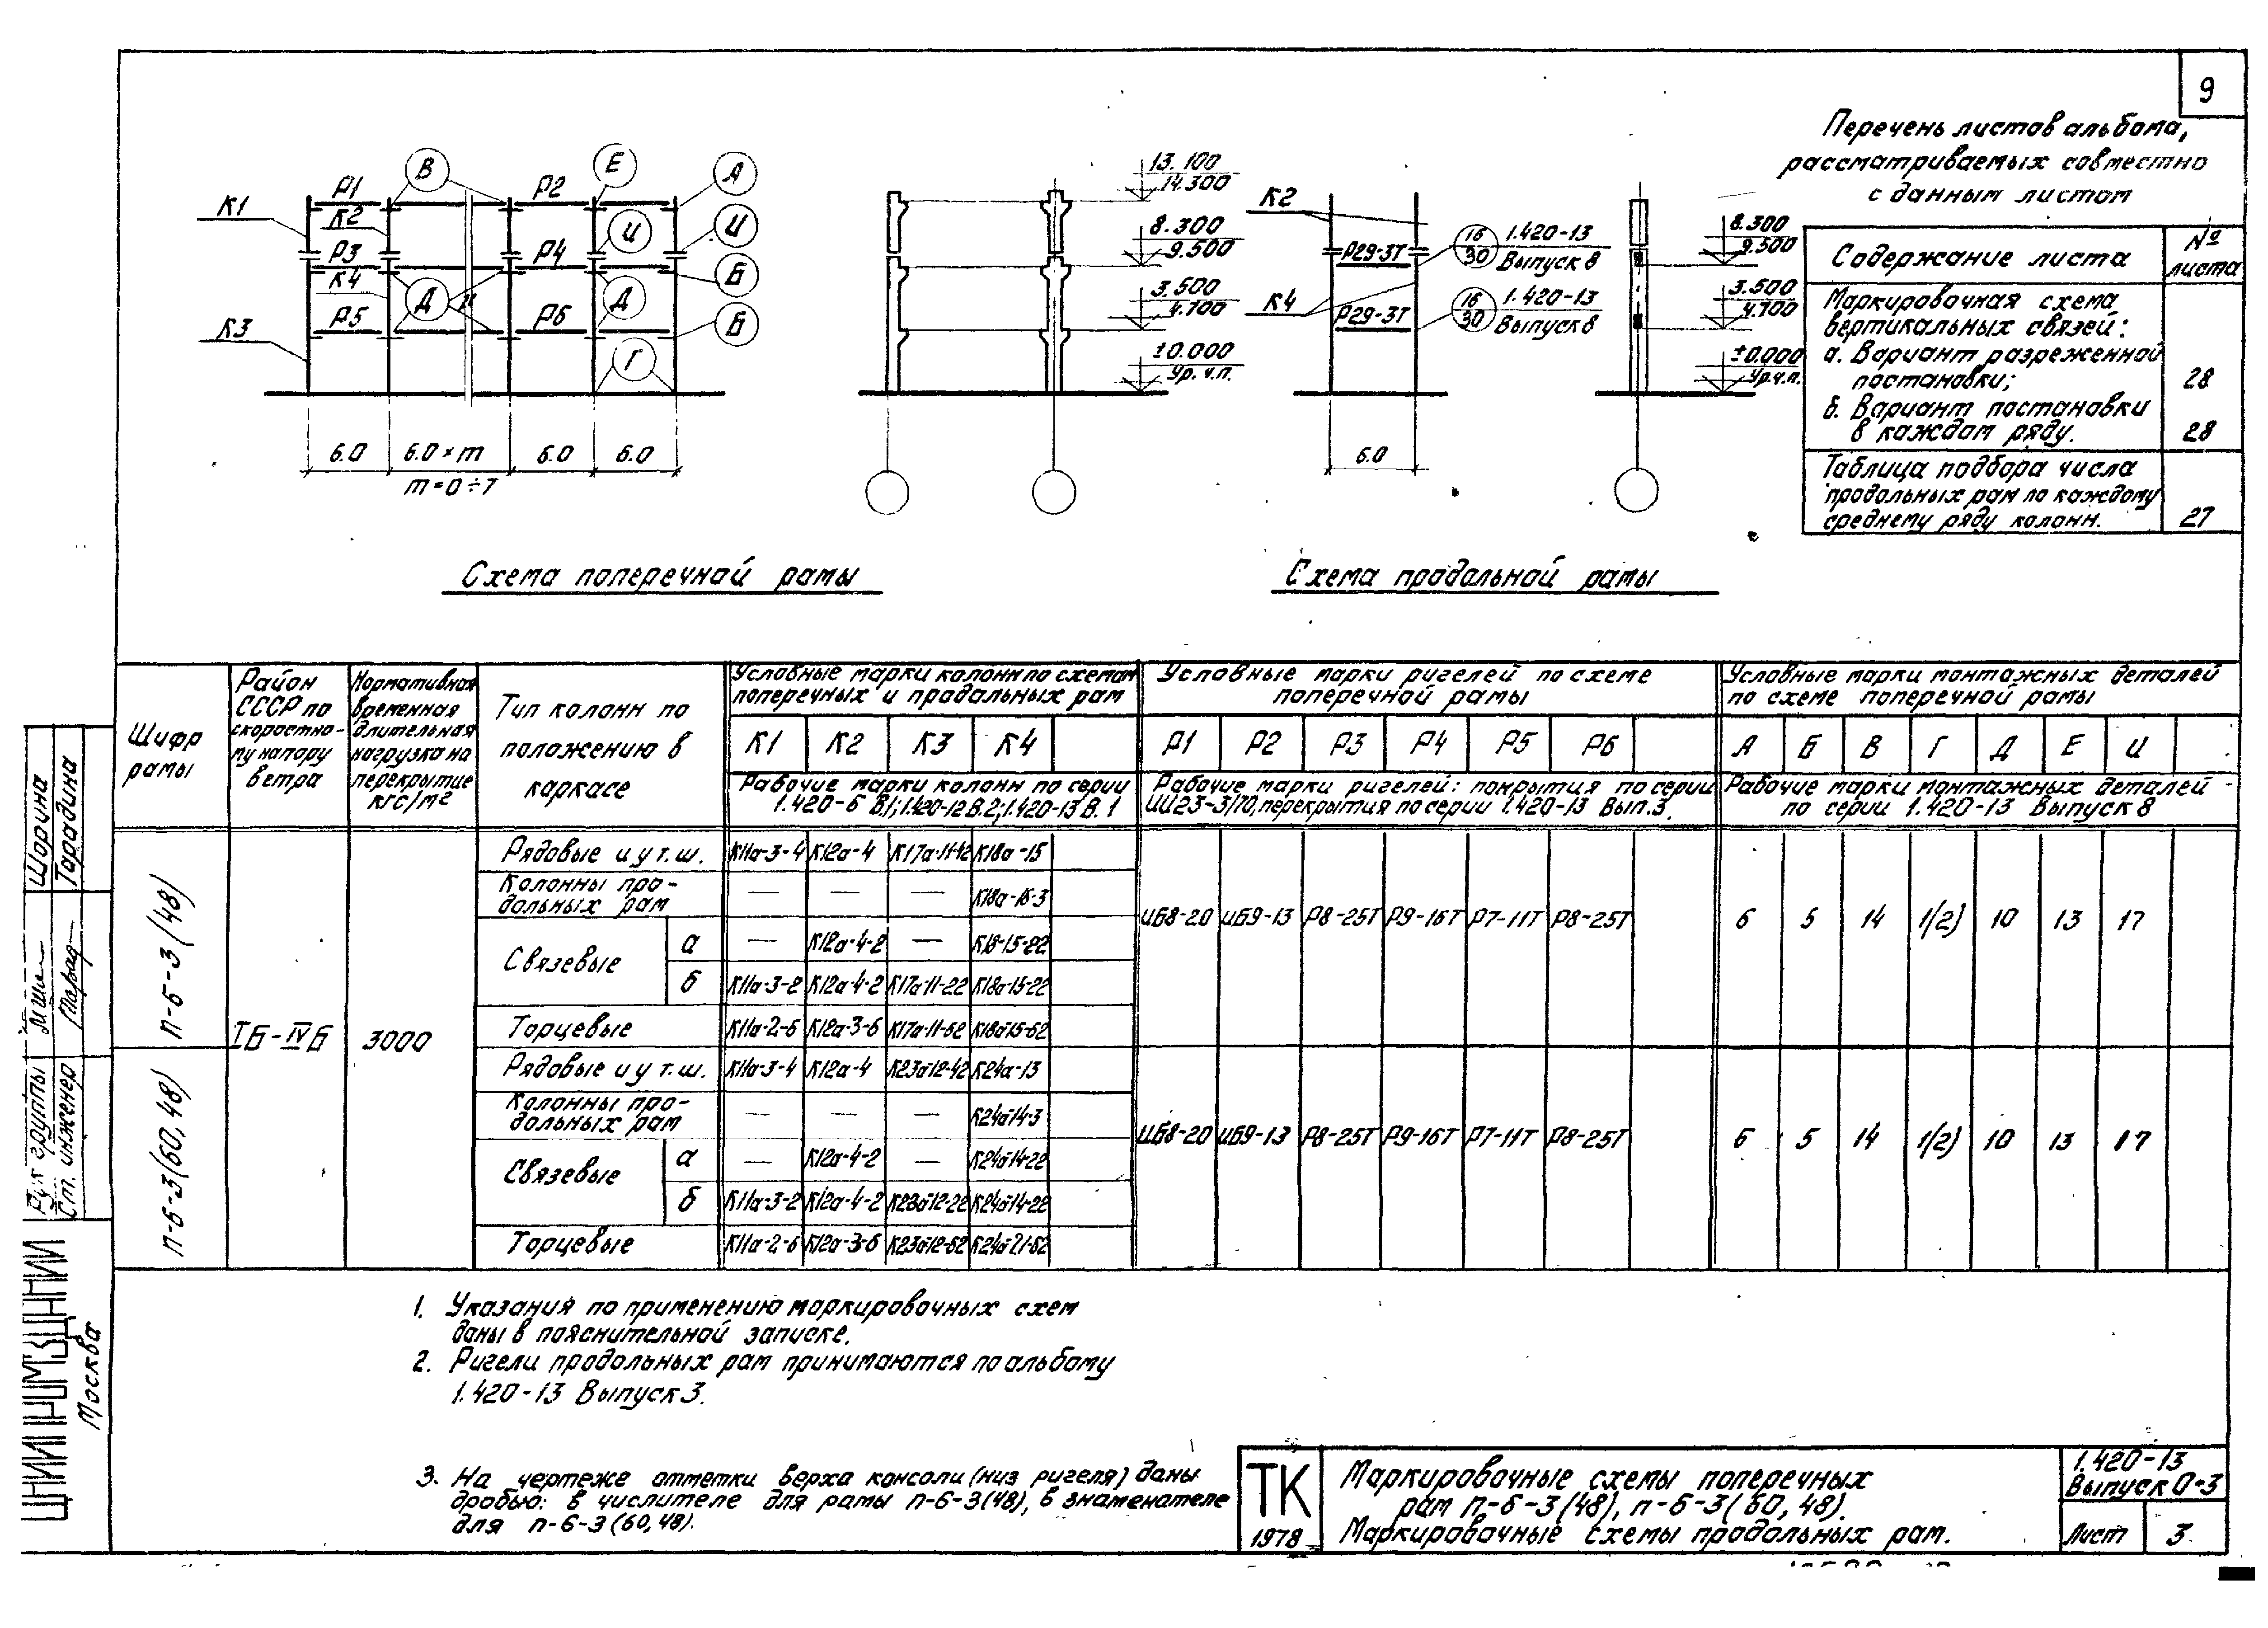 9
Перечень листов альбома,
рассматриваемых совместно
с данным листом
Содержание листа
№ листа
Маркировочная схема
вертикальных связей:
а. Вариант разреженной
постановки;
28
б. Вариант постановки
в каждом ряду.
28
Таблица подбора числа
продольных рам по каждому
среднему ряду колонн.
27
К1 Р1 К2 В Р2 Е А
Р3 К4 Р4 И И
К3 Р5 Д И Р6 Д Б
Г Б
6.0 6.0×m 6.0 6.0
m=0÷7
13.100
14.300
8.300
9.500
3.500
4.700
±0.000
Ур.ч.п.
К2
К4
Р29-3Т
Р29-3Т
16
30
1.420-13
Выпуск 8
16
30
1.420-13
Выпуск 8
6.0
8.300
9.500
3.500
4.700
±0.000
Ур.ч.п.
Схема поперечной рамы
Схема продольной рамы
Шифр
рамы
Район
СССР по
скоростно-
му напору
ветра
Нормативная
временная
длительная
нагрузка на
перекрытие
кгс/м²
Тип колонн по
положению в
каркасе
Условные марки колонн по схемам
поперечных и продольных рам
К1 К2 К3 К4
Рабочие марки колонн по серии
1.420-6 В.1; 1.420-12 В.2; 1.420-13 В.1
Условные марки ригелей по схеме
поперечной рамы
Р1 Р2 Р3 Р4 Р5 Р6
Рабочие марки ригелей: покрытия по серии
ИИ23-3/70, перекрытия по серии 1.420-13 Вып.3.
Условные марки монтажных деталей
по схеме поперечной рамы
А Б В Г Д Е И
Рабочие марки монтажных деталей -
по серии 1.420-13 Выпуск 8
п-6-3(48)
IБ-IVБ
3000
Рядовые и у т.ш. К11а-3-4 К12а-4 К17а-11-42 К18а-15
Колонны про-
дольных рам — — — К18а-16-3
Связевые
а — К12а-4-2 — К18-15-22
б К11а-3-2 К12а-4-2 К17а-11-22 К18а-15-22
Торцевые К11а-2-6 К12а-3-6 К17а-11-62 К18а-15-62
ИБ8-20 ИБ9-13 Р8-25Т Р9-16Т Р7-11Т Р8-25Т
6 5 14 1(2) 10 13 17
п-6-3(60,48)
Рядовые и у т.ш. К11а-3-4 К12а-4 К23а-12-42 К24а-13
Колонны про-
дольных рам — — — К24а-14-3
Связевые
а — К12а-4-2 — К24а-14-22
б К11а-3-2 К12а-4-2 К23а-12-22 К24а-14-22
Торцевые К11а-2-6 К12а-3-6 К23а-12-62 К24а-21-62
ИБ8-20 ИБ9-13 Р8-25Т Р9-16Т Р7-11Т Р8-25Т
6 5 14 1(2) 10 13 17
1. Указания по применению маркировочных схем
даны в пояснительной записке.
2. Ригели продольных рам принимаются по альбому
1.420-13 Выпуск 3.
3. На чертеже отметки верха консоли (низ ригеля) даны
дробью: в числителе для рамы п-6-3(48), в знаменателе
для п-6-3(60,48).
ТК
1978
Маркировочные схемы поперечных
рам п-6-3(48), п-6-3(60,48).
Маркировочные схемы продольных рам.
1.420-13
Выпуск 0-3
Лист 3
Рук. группы Шорина
Ст. инженер Тарадина
ЦНИИПРОМЗДАНИЙ
Москва